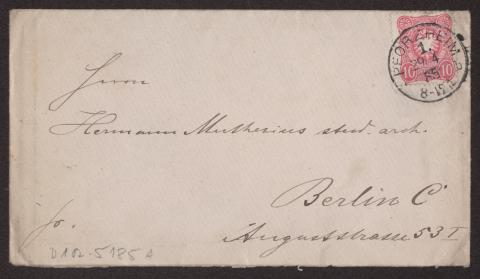 PFORZHEIM
1.
29 4
85
8-9V.
10 10
Herrn
Hermann Muthesius stud. arch.
Berlin C
fr.
Auguststrasse 53 I
D102-5185